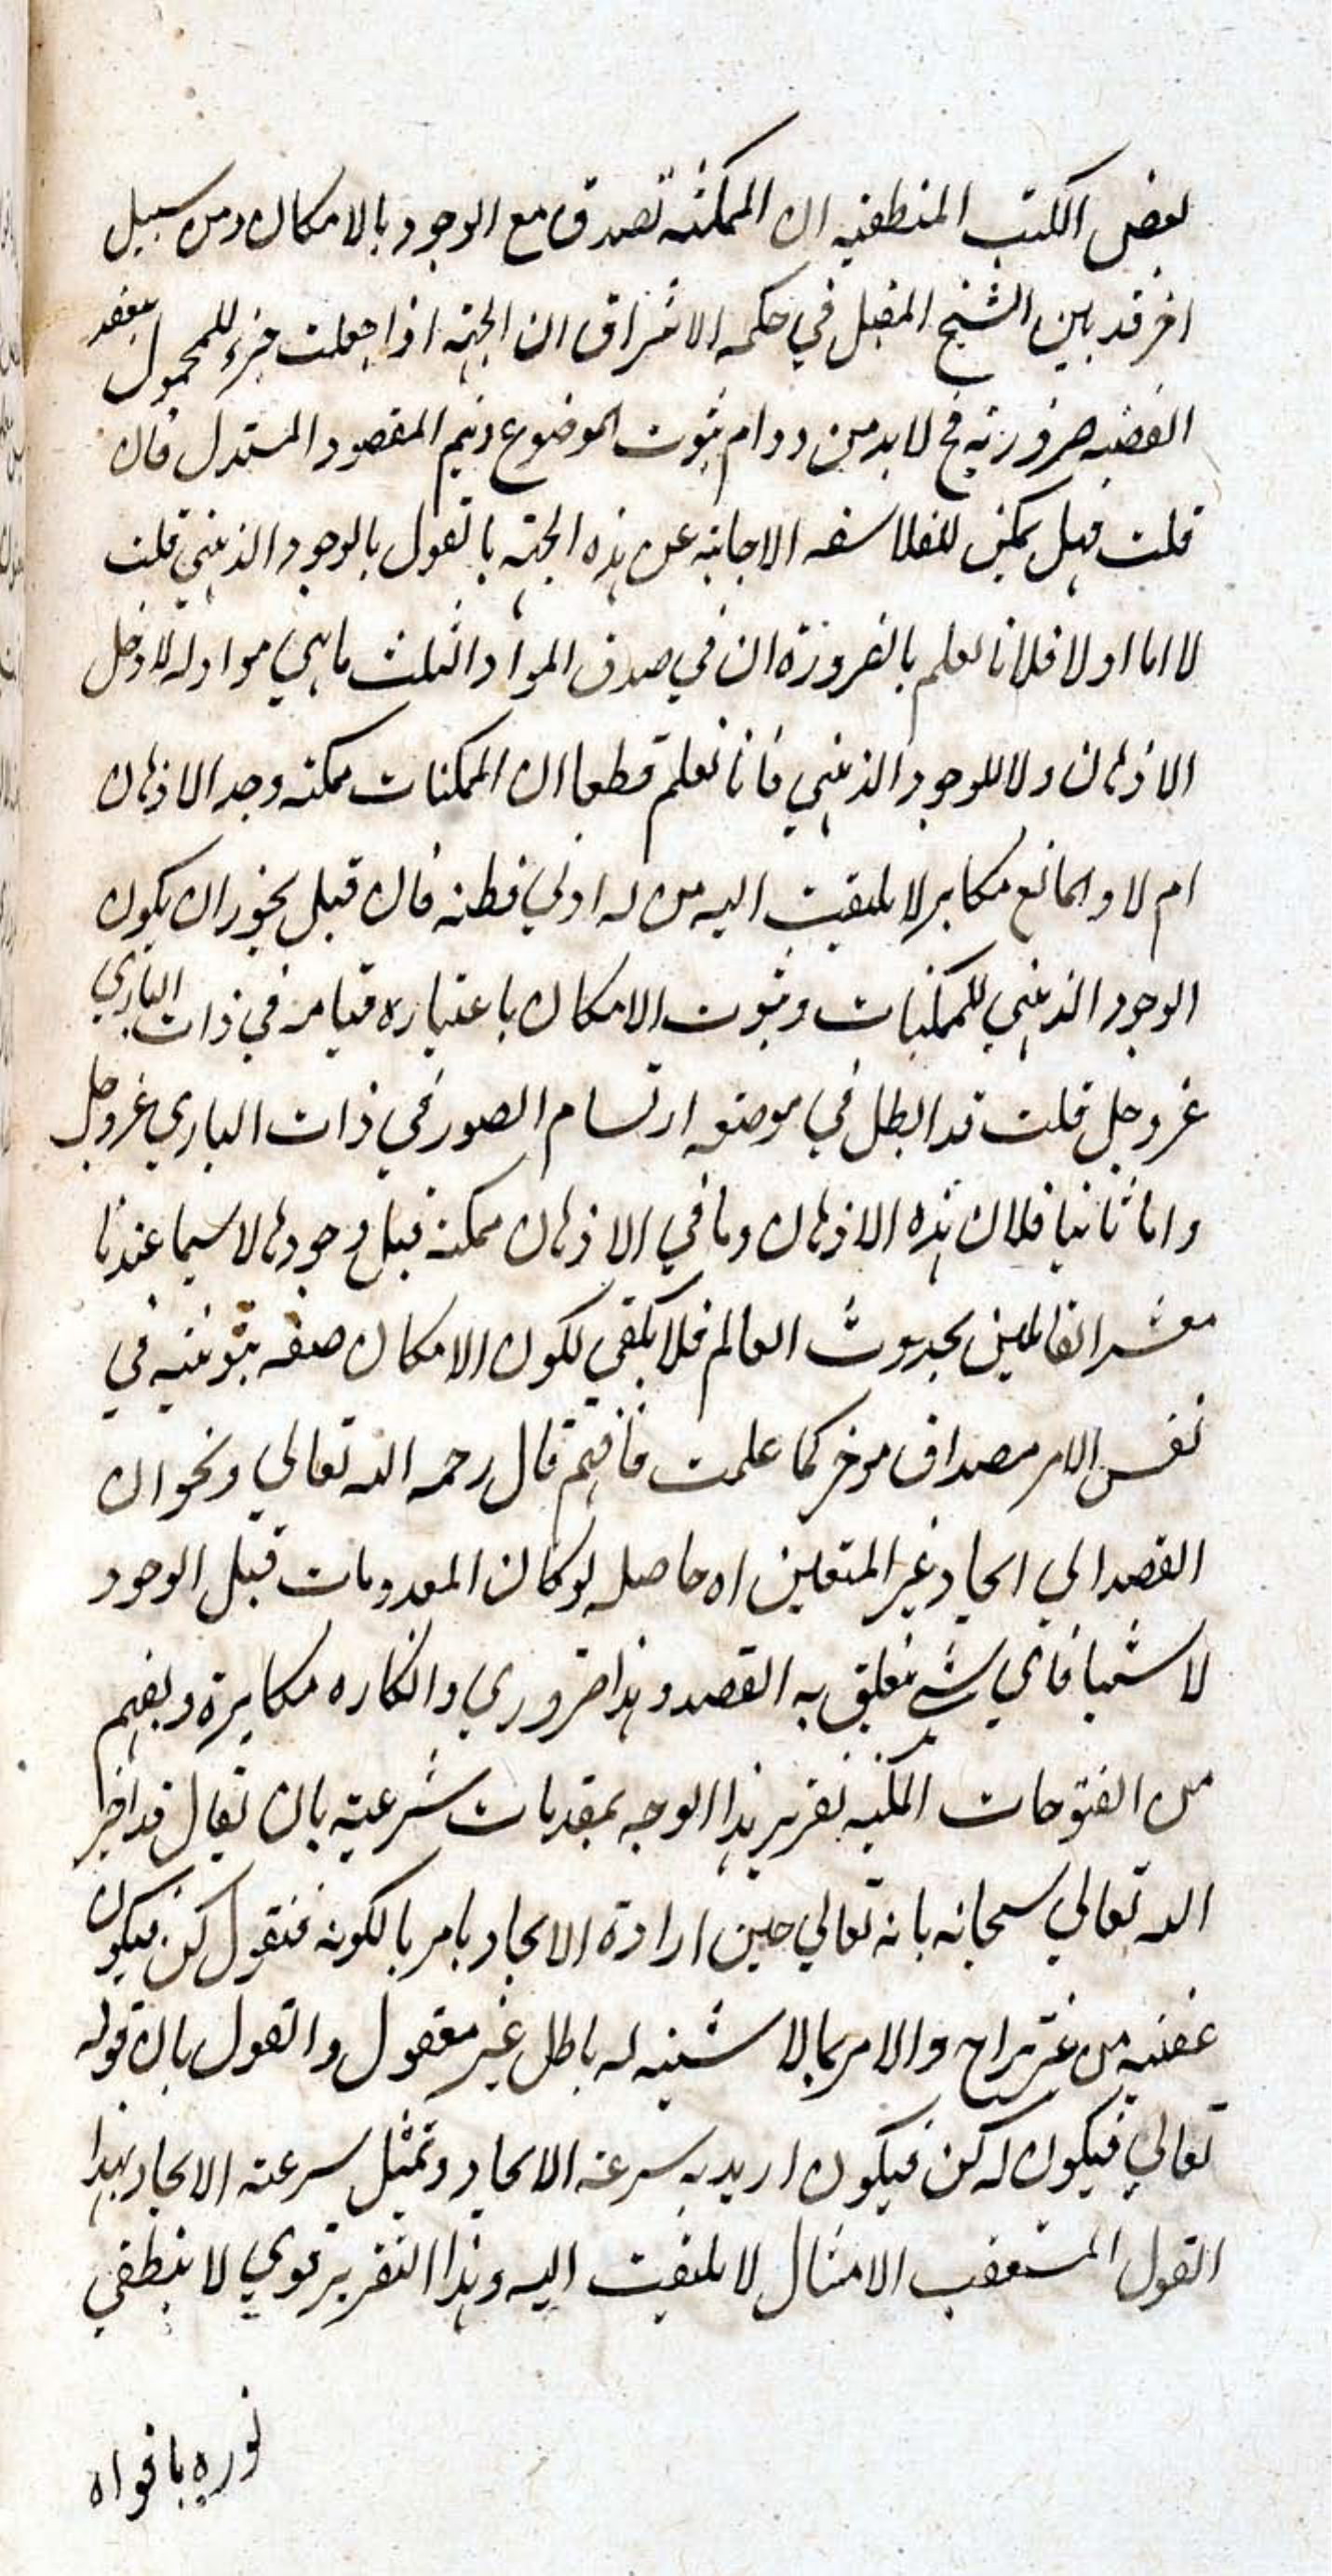 بعض الكتب المنطقيه ان الممكنة تصدق مع الوجود بالامكان ومن سبيل
اخر قد بين الشيخ المقبل في حكمه الاشراق ان الجهة اذا جعلت جزء للمحمول ينعقد
القضيه ضرورية فح لا بد من دوام ثبوت الموضوع ويتم المقصود المستدل فان
قلت فهل يمكن للفلاسفه الاجابة عن هذه الجهة بالقول بالوجود الذهني قلت
لا اما اولا فلانا نعلم بالضرورة ان في صدق المواد الثلث ما هي مواد له لا دخل
الاذهان ولا للوجود الذهني فانا نعلم قطعا ان الممكنات ممكنه وجد الاذهان
ام لا والمانع مكابر لا يلتفت اليه من له ادني فطنه فان قيل يجوز ان يكون
الوجود الذهني للممكنات وثبوت الامكان باعتباره قيامه في ذات الباري
عز وجل قلت قد ابطل في موضعه ارتسام الصور في ذات الباري عز وجل
واما ثانيا فلان هذه الاذهان وما في الاذهان ممكنة قبل وجودها لا سيما عندنا
معشر القائلين بحدوث العالم فلا يكفي لكون الامكان صفه ثبوتيه في
نفس الامر مصداق موخر كما علمت فافهم قال رحمه الله تعالي ونحو ان
القصد الي ايجاد غير المتعين اه حاصله لو كان المعدومات قبل الوجود
لا شيئا فاي شي يتعلق به القصد وهذا ضروري وانكاره مكابرة ويفهم
من الفتوحات المكيه تقرير هذا الوجه بمقدمات شرعية بان يقال قد اخبر
الله تعالي سبحانه بانه تعالي حين ارادة الايجاد يامر بالكونه فيقول كن فيكون
عقبه من غير تراخ والامر بما لا شيئيه له باطل غير معقول والقول بان قوله
تعالي فيكون له كن فيكون اريد به سرعة الايجاد وتمثيل سرعته الايجاد بهذا
القول المستعقب الامتثال لا يلتفت اليه وهذا التقرير قوي لا ينطفي
نوره بافواه